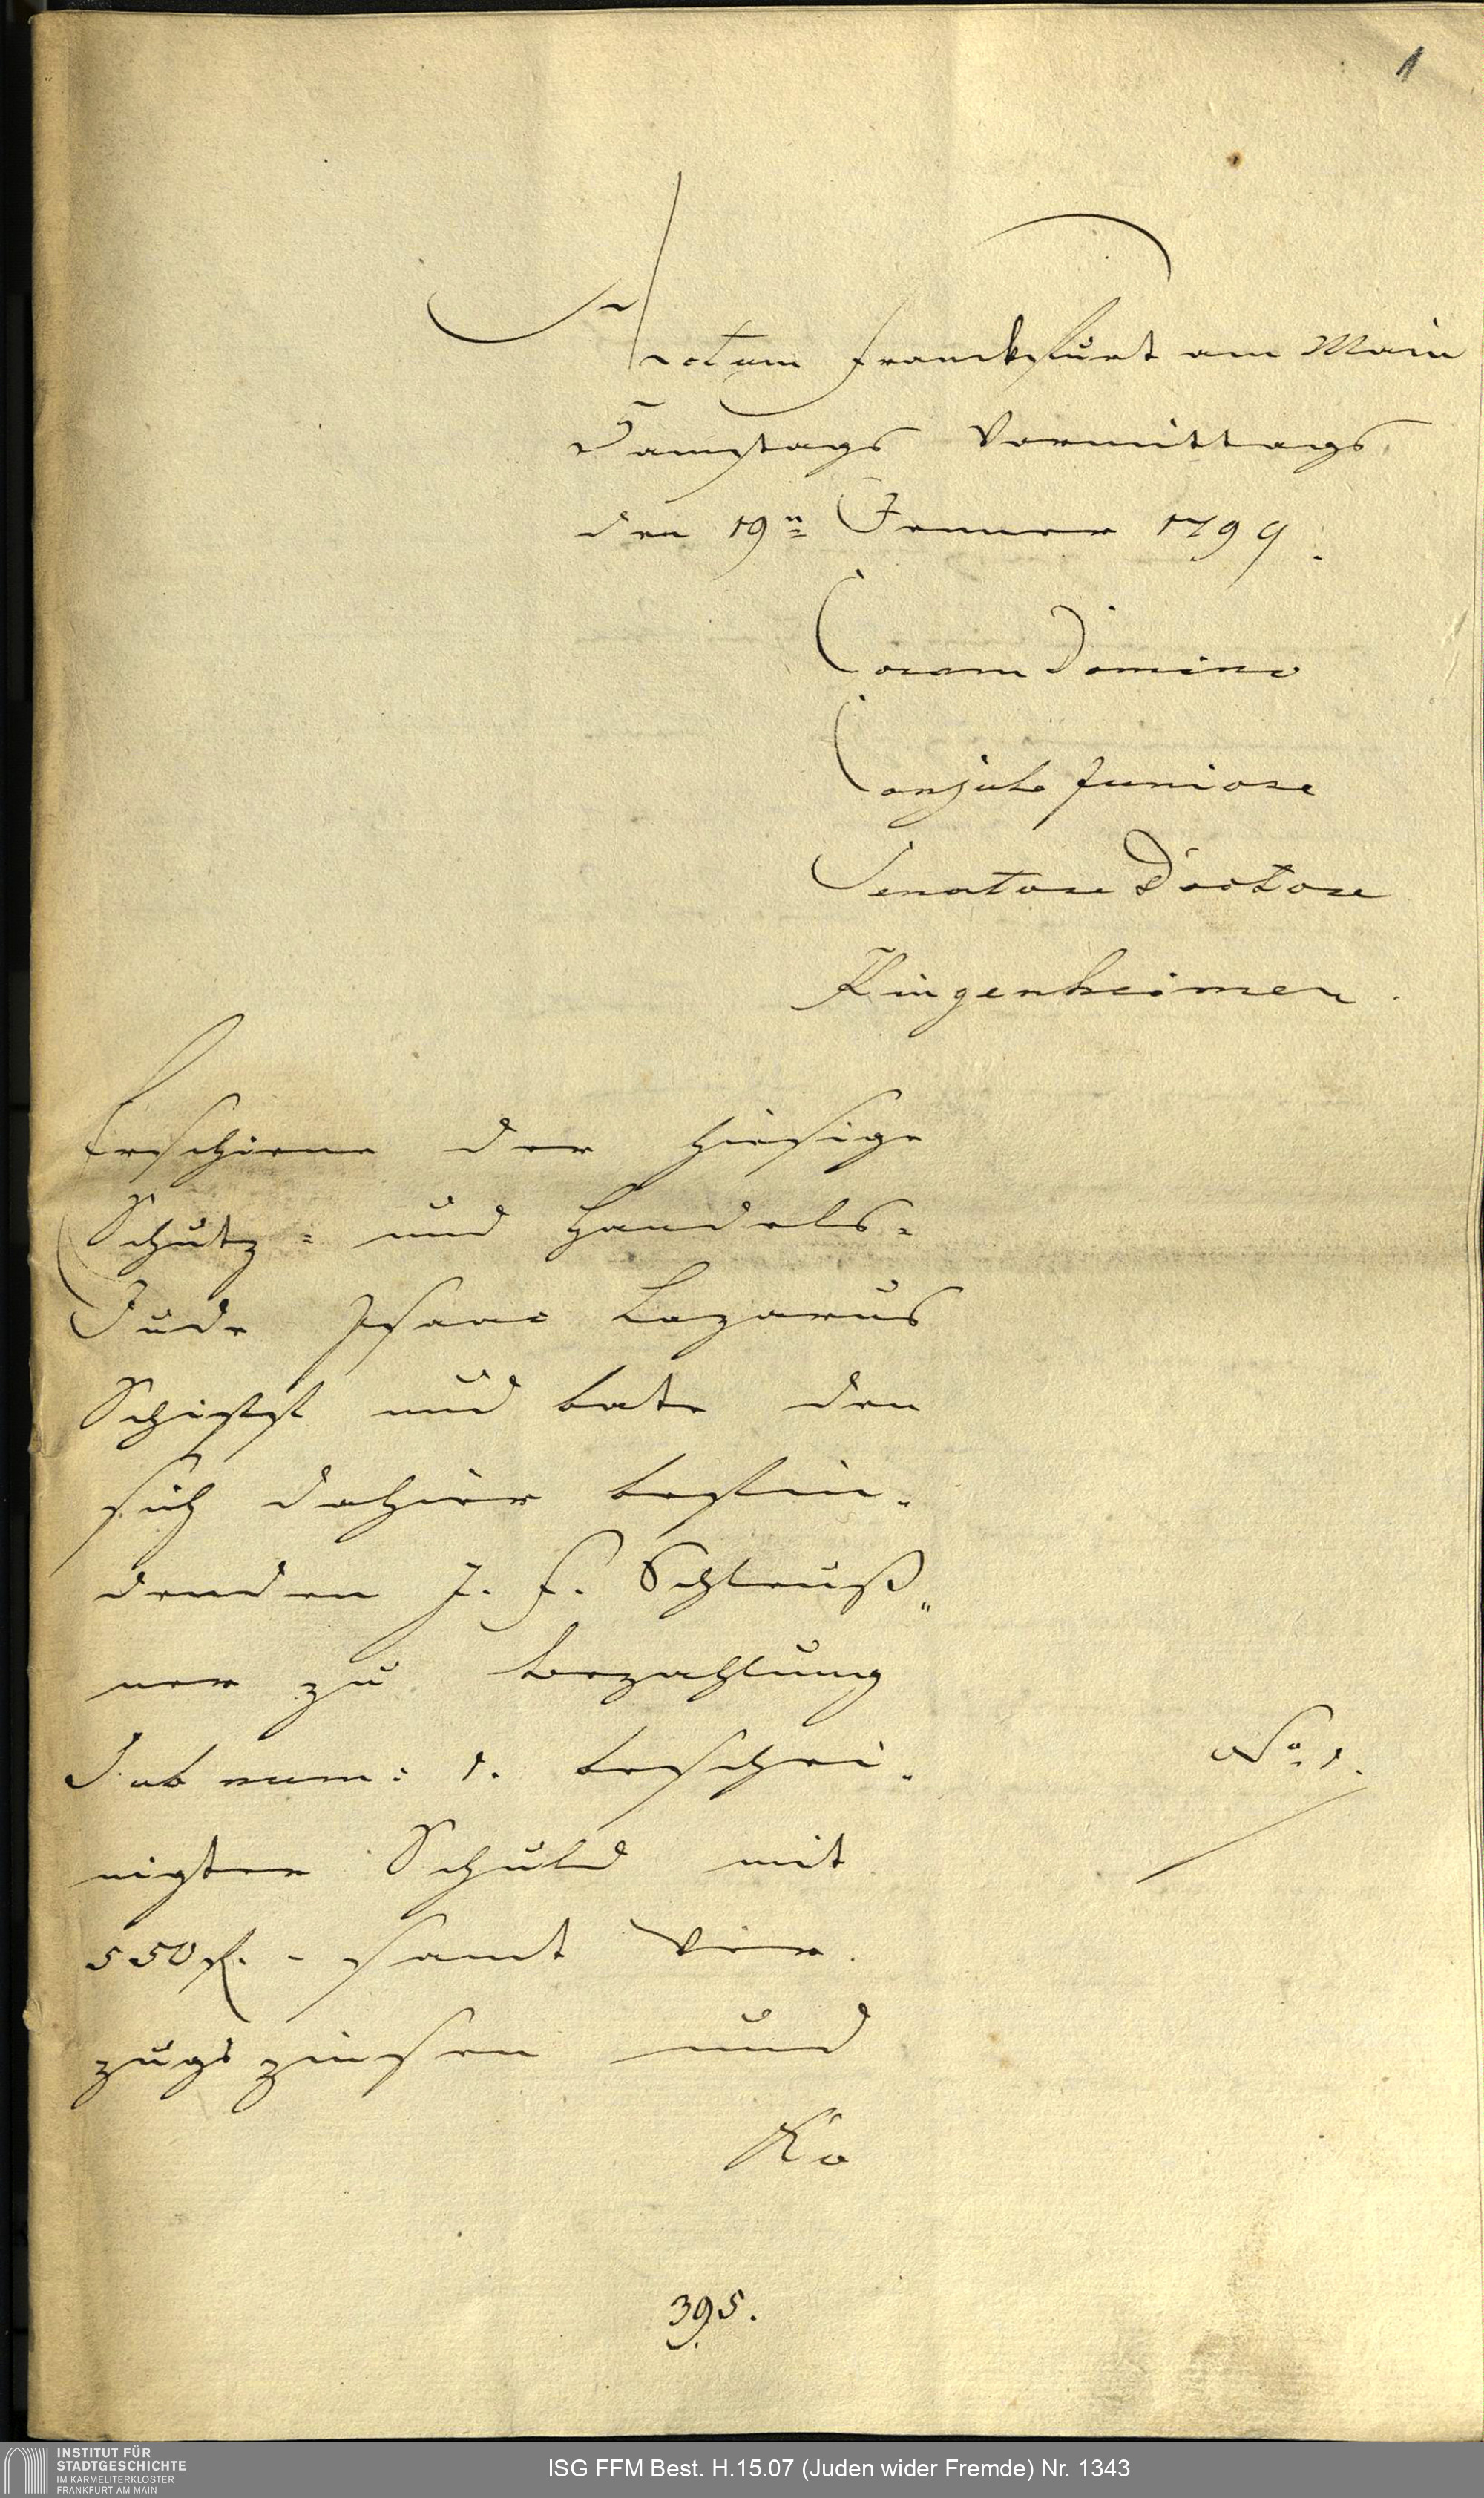 1
Actum Franckfurt am Main
Samstags Vormittags
den 19n Jenner 1799.
Coram Domino
Consule Juniore
Senatore Doctore
Hingenheimer.
Erschiene der hiesige
Schutz= und Handels=
Jude Isaac Lazarus
Schiff und bate den
sich dahier befin=
denden J. F. Schleuß„
ner zu Bezahlung
Sub num: 1. beschei=
No. 1.
nigter Schuld mit
550 f. - samt Ver
zugszinsen und
Ko
395.
INSTITUT FÜR
STADTGESCHICHTE
IM KARMELITERKLOSTER
FRANKFURT AM MAIN
ISG FFM Best. H.15.07 (Juden wider Fremde) Nr. 1343